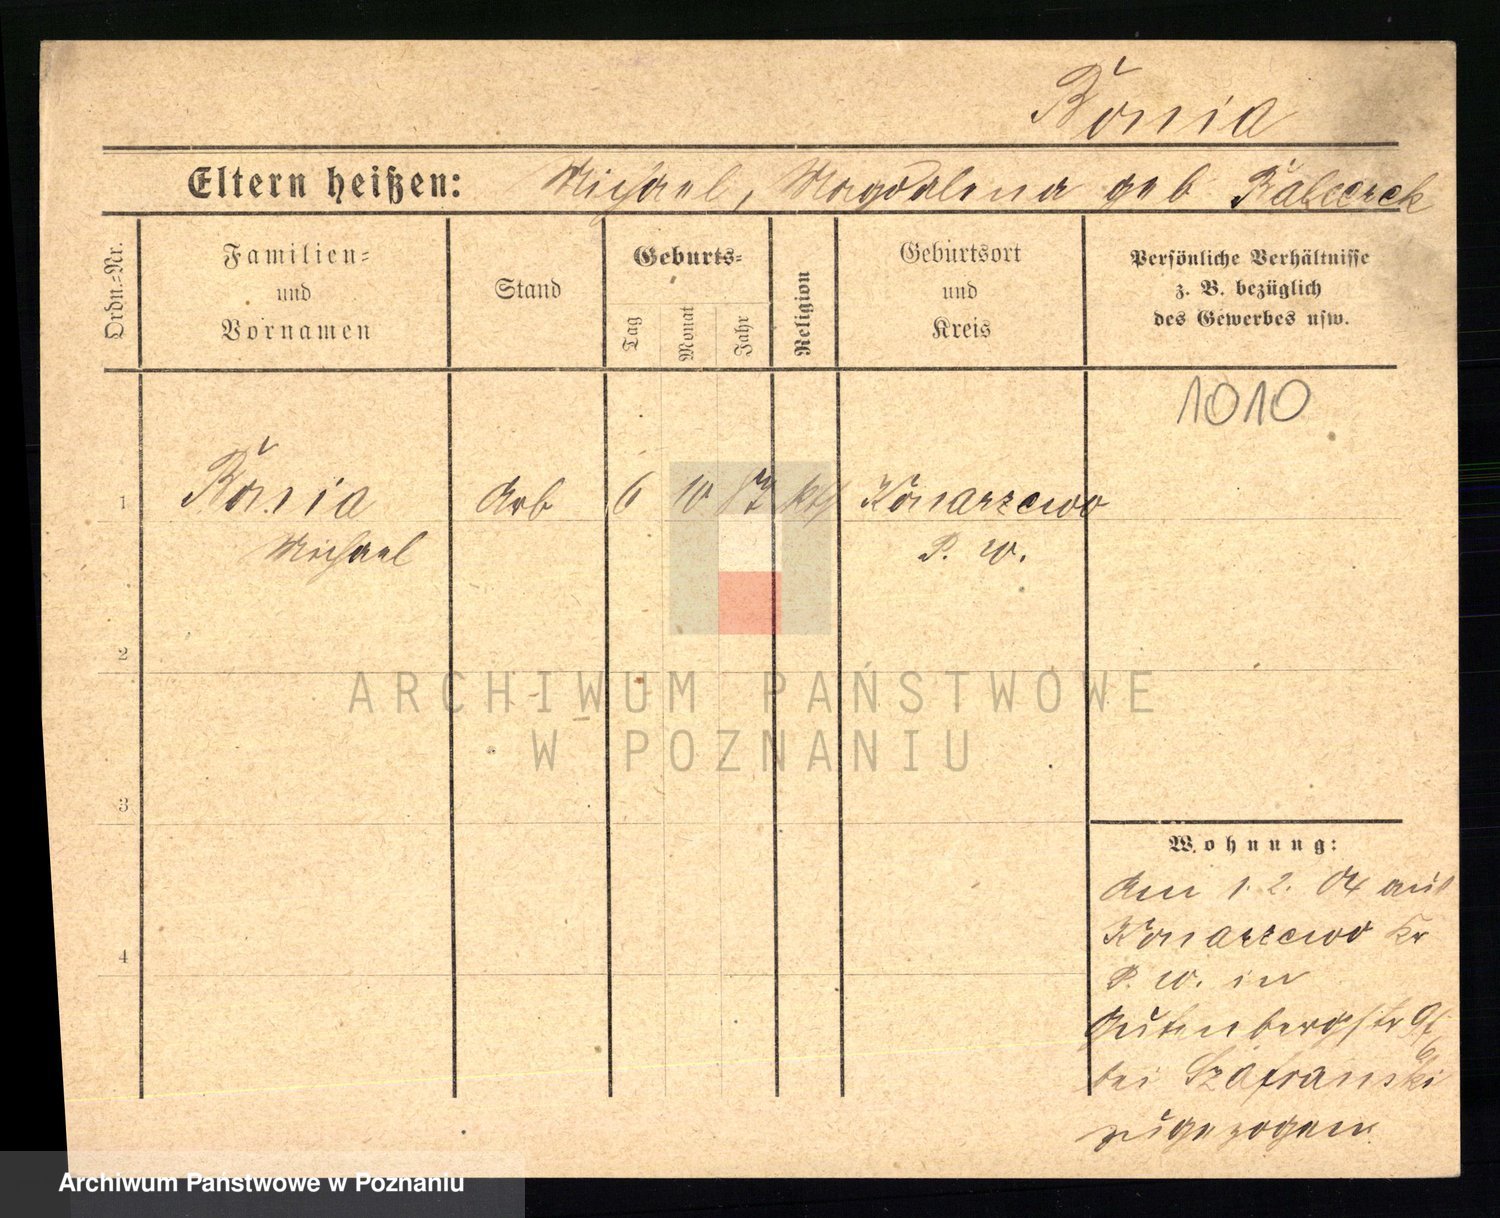 Bonia
Eltern heißen: Michael, Magdalena geb
Ordn.-Nr.
Familien-
und
Vornamen
Stand
Geburts-
Tag
Monat
Jahr
Religion
Geburtsort
und
Kreis
Persönliche Verhältnisse
z. B. bezüglich
des Gewerbes usw.
1010
1 Bonia Arb 6 10 87 kth Konarzewo
Michael P. W.
2
ARCHIWUM PAŃSTWOWE
W POZNANIU
3
Wohnung:
Am 1. 2. 04 aus
Konarzewo Kr
4
P. W. in
Gutenbergstr
bei Szafranski
zugezogen
Archiwum Państwowe w Poznaniu